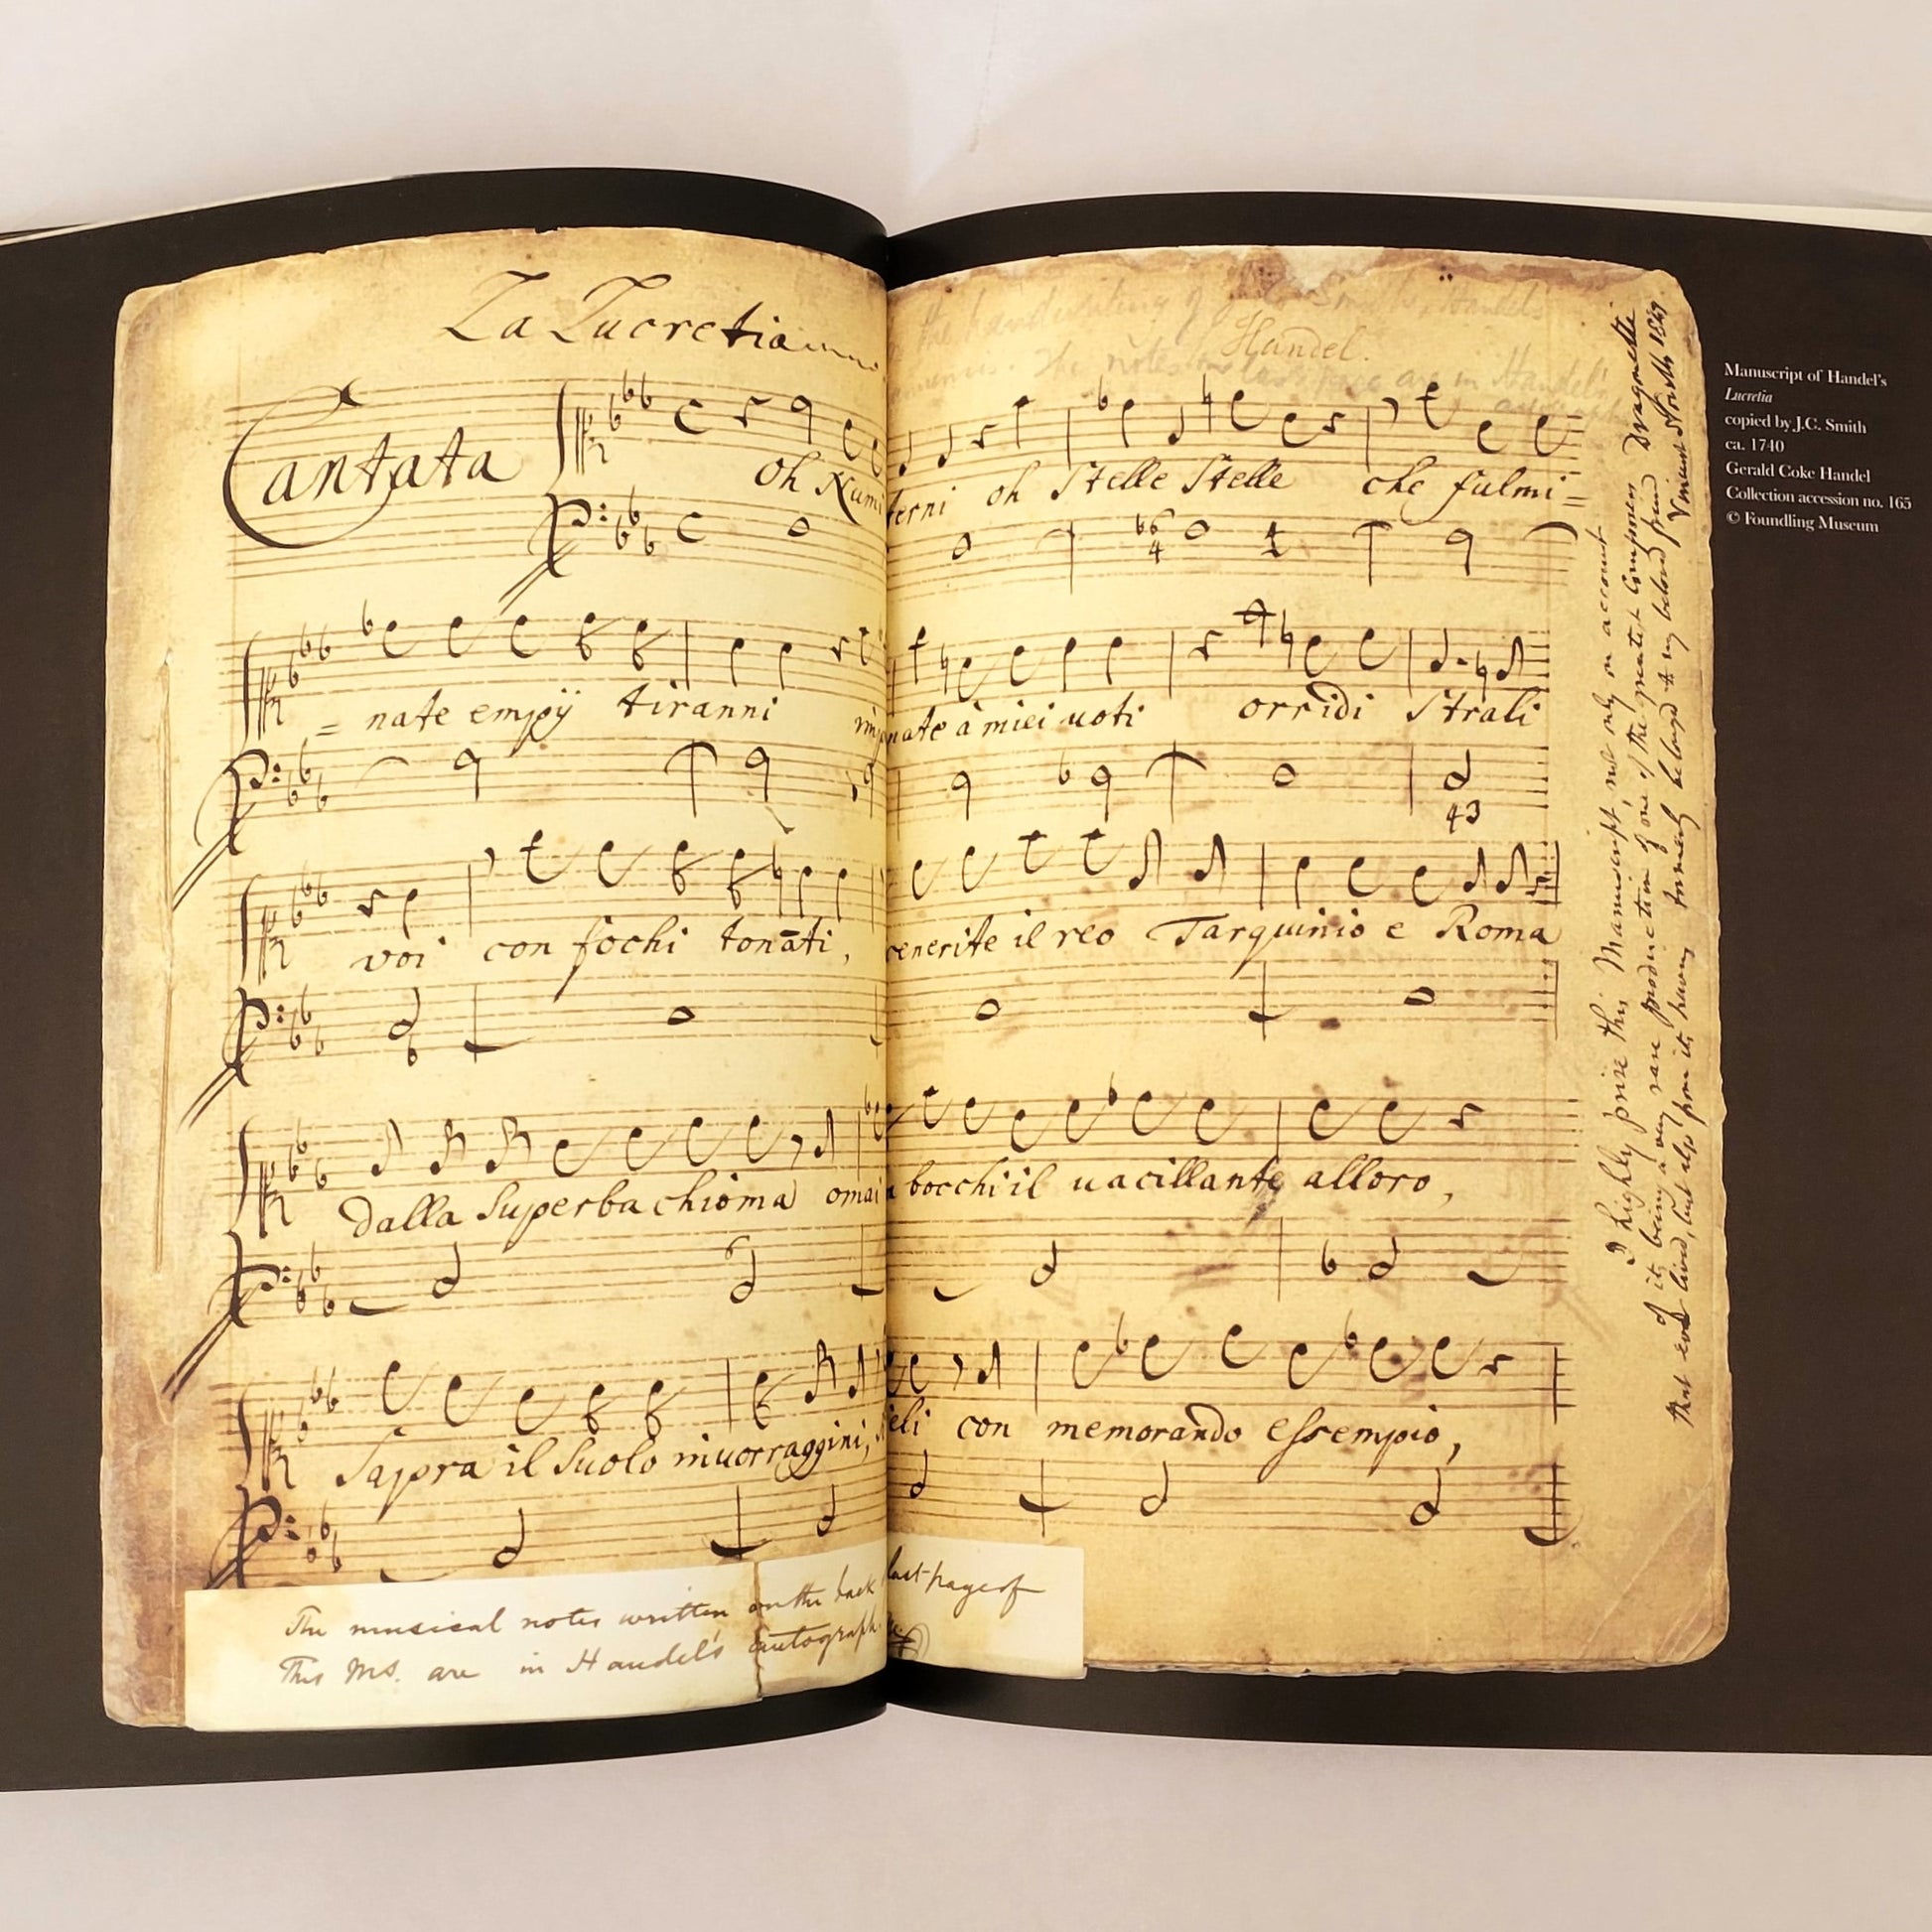 La Lucretia
the handwriting of J. C. Smith, Handel's
Handel.
The notes on last page are in Handel's
Cantata
Oh Numi terni oh Stelle Stelle che fulmi=
b6
4
= nate empÿ tiranni impnate à miei uoti orridi Strali
43
voi con fochi tonāti, cenerite il reo Tarquinio e Roma
dalla Superba chioma omai bocchi il uacillante alloro,
Sapra il Suolo in uorraggini, Sieli con memorando essempio,
The musical notes written on the back last page of
This MS. are in Handel's autograph.
I highly prize this Manuscript, not only on account
of its being a very rare production of one of the greatest Composers
that ever lived, but also from its having formerly belonged to my beloved friend Dragonetti
Vincent Novello 1849
Manuscript of Handel's
Lucretia
copied by J.C. Smith
ca. 1740
Gerald Coke Handel
Collection accession no. 165
© Foundling Museum